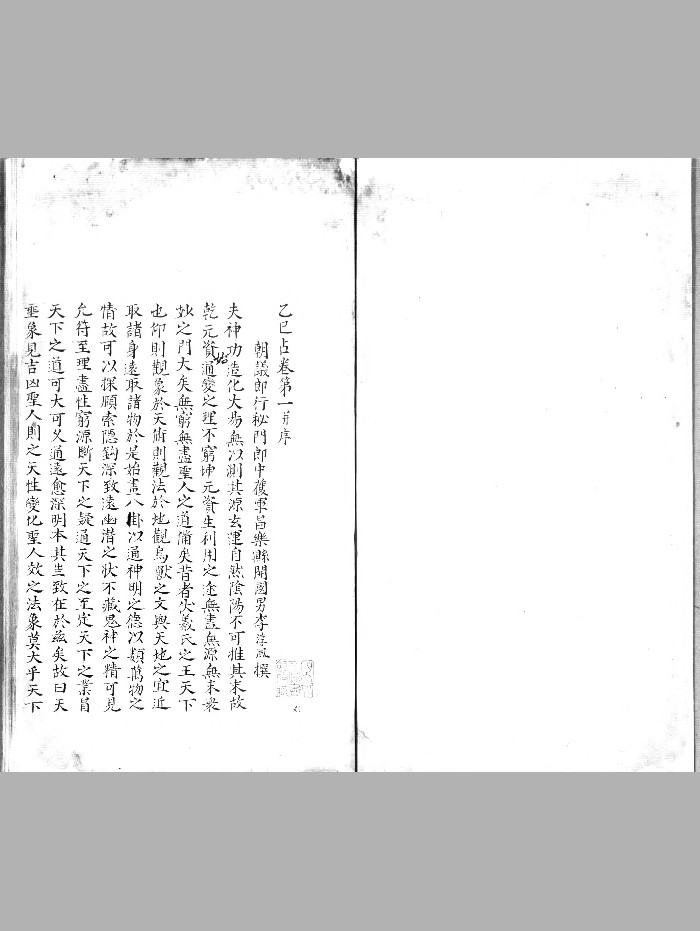 乙巳占卷第一并序
朝議郎行秘閤郎中護軍昌樂縣開國男李淳風撰
夫神功造化大易無以測其源玄運自然陰陽不可推其末故
乾元資始通變之理不窮坤元資生利用之途無盡無源無末衆
妙之門大矣無窮無盡聖人之道備矣昔者伏羲氏之王天下
也仰則觀象於天俯則觀法於地觀鳥獸之文與天地之宜近
取諸身遠取諸物於是始畫八掛以通神明之德以類萬物之
情故可以探賾索隱鈎深致遠幽潛之狀不藏鬼神之精可見
允符至理盡性窮源斷天下之疑通天下之至定天下之業昌
天下之道可大可久道遠愈深明本其旨致在於兹矣故曰天
垂象見吉凶聖人則之天性變化聖人效之法象莫大乎天下